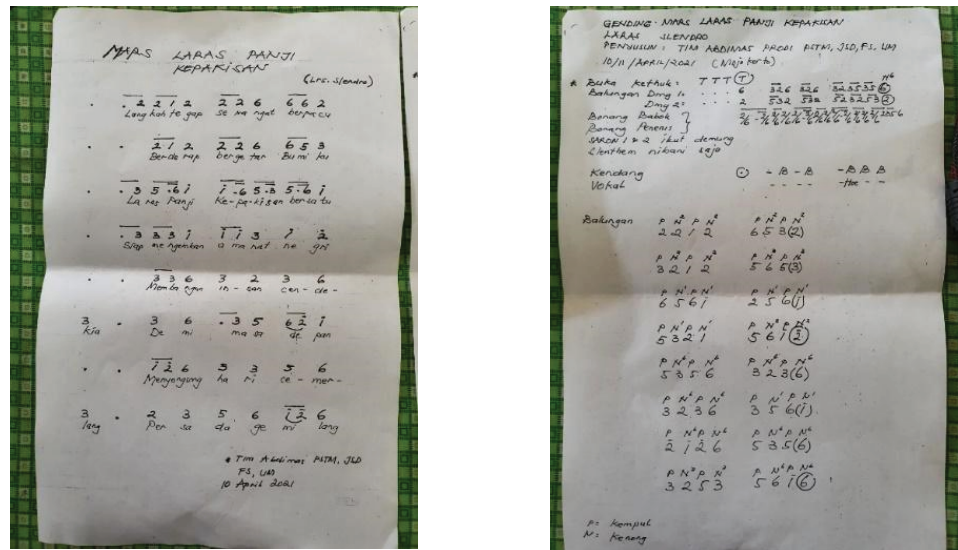 MARS LARAS PANJI
KEPAKISAN
(Lrs. Slendro)
. . 2 2 1 2 2 2 6 6 6 2
Langkah te gap se ma ngat berpacu
. . 2 1 2 2 2 6 6 5 3
Bende rap berge tar Bumi ku
. . 3 5 . 6 i i . 6 5 . 3 5 . 6 i
La ras Panji Ke - pa - ki san bersa tu
. . 3 3 3 i i i 3 i 2
Siap me ngemban a ma nat ne gri
. . 3 3 6 3 2 3 6
Memba ngun in - san cen - de -
3 . 3 6 . 3 5 6 2 i
kia De mi ma sa de pan
. . i 2 6 5 3 5 6
Menyongsong ha ri se - mer -
3 . 2 3 5 6 i 2 6
lang Per sa da ge mi lang
* Tim Abdimas PSTM, JSD
FS, UM
10 April 2021
GENDING MARS LARAS PANJI KEPAKISAN
LARAS SLENDRO
PENYUSUN : TIM ABDIMAS PRODI PSTM, JSD, FS, UM
10/11 /APRIL/2021 (Mojokerto)
* Buka kethuk : T T T (T)
Balungan Dmg 1 : . . . 6 326 326 323535(6)
Dmg 2 : . . . 2 532 532 523253(2)
Bonang Babok
Bonang Penerus
SARON 1 & 2 ikut demung
Slenthem nibani saja
Kendang - B - B - B B B
Vokal - - - -
Balungan P N² P N² P N² P N²
2 2 1 2 6 5 3 (2)
P N² P N² P N³ P N³
3 2 1 2 5 6 5 (3)
P N¹ P N¹ P N¹ P N¹
6 5 6 i 2 5 6 (i)
P N¹ P N¹ P N² P N²
5 3 2 1 5 6 i (2)
P N⁶ P N⁶ P N⁶ P N⁶
5 3 5 6 3 2 3 (6)
P N⁶ P N⁶ P N¹ P N¹
3 2 3 6 3 5 6 (i)
P N⁶ P N⁶ P N⁶ P N⁶
2 i 2 6 5 3 5 (6)
P N³ P N³ P N⁶ P N⁶
3 2 5 3 5 6 i (6)
P = Kempul
N = Kenong